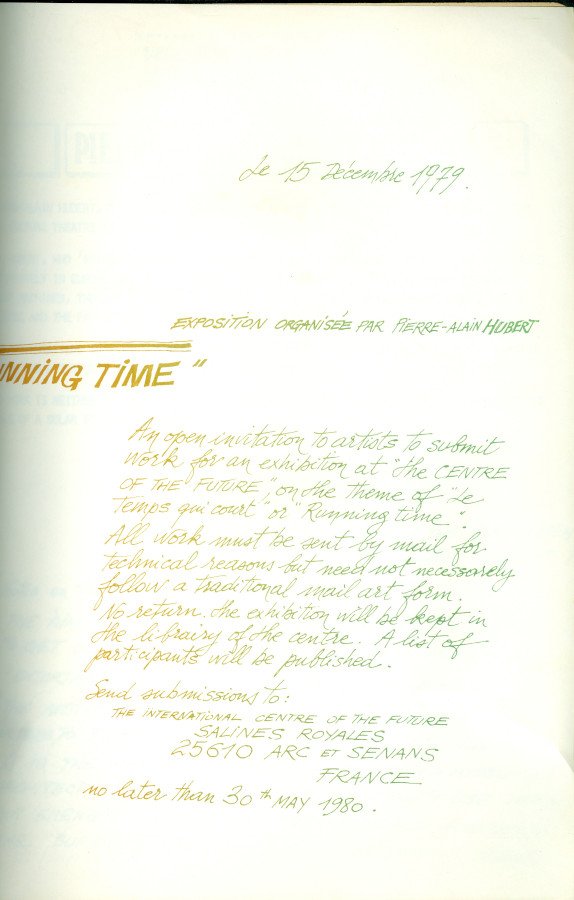 Le 15 Décembre 1979.
EXPOSITION ORGANISÉE PAR PIERRE-ALAIN HUBERT
NNING TIME"
An open invitation to artists to submit
work for an exhibition at "the CENTRE
OF THE FUTURE", on the theme of "Le
Temps qui court" or "Running time".
All work must be sent by mail for
technical reasons but need not necessarely
follow a traditional mail art form.
No return. the exhibition will be kept in
the librairy of the centre. A list of
participants will be published.
Send submissions to:
THE INTERNATIONAL CENTRE OF THE FUTURE
SALINES ROYALES
25610 ARC ET SENANS
FRANCE
no later than 30th MAY 1980.